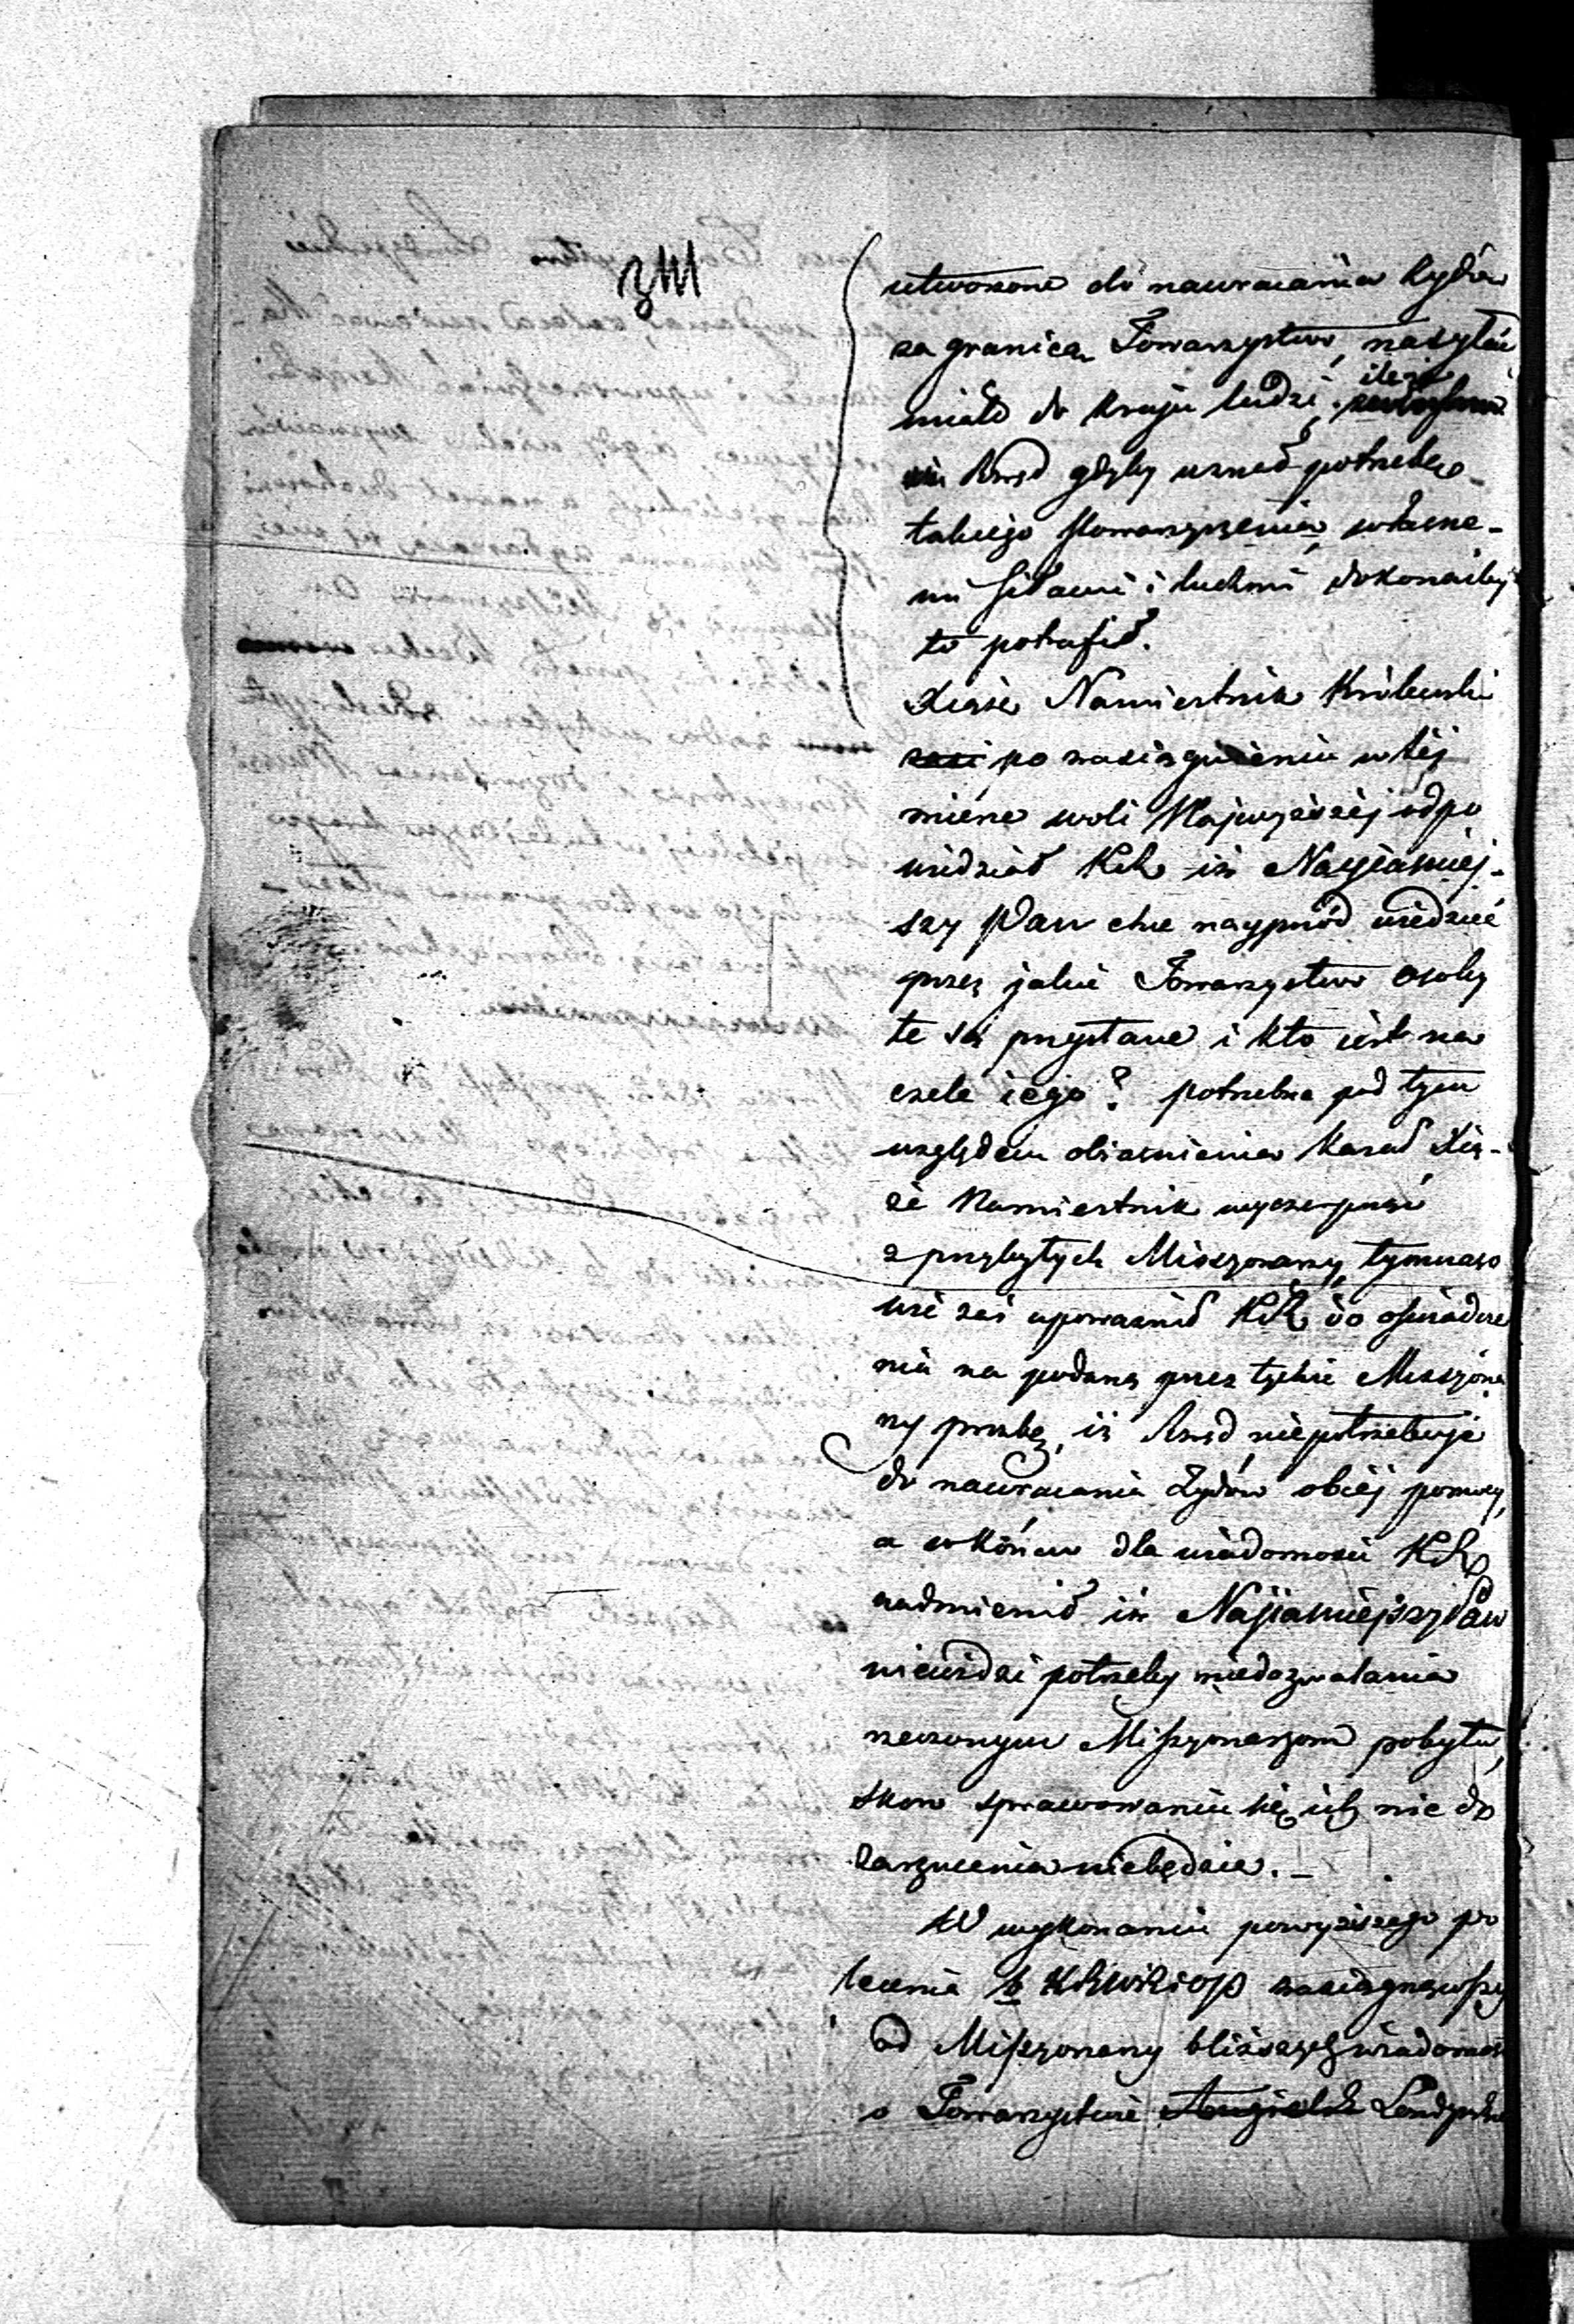 utworzone do nawracania Żydów
za granicą Towarzystwo, nasyłać
miało do Kraju ludzi; ileże
Rząd gdyby uznał potrzebę
takiego stowarzyszenia, własne-
mi siłami i ludźmi dokonaćby
to potrafił.
Xiąże Namiestnik Królewski
zaś po zasiągnieniu w tej
mierze woli Najwyższej odpo
wiedział KR iż Nayiaśniej-
szy Pan chce nayprzód wiedzieć
przez jakie Towarzystwo osoby
te są przysłane i kto iest na
czele iego? potrzebne pod tym
względem obiaśnienia kazał Xią-
że Namiestnik wyczerpnąć
z przybyłych Missyonarzy, tymczaso
wie zaś upoważnił KR do oświadcze
nia na podaną przez tychże Missyona
rzy prośbę, iż Rząd niepotrzebuje
do nawracania Żydów obcéj pomocy,
a w końcu dla wiadomości KR
nadmienił iż Najiaśniejszy Pan
niewidzi potrzeby niedozwalania
rzeczonym Missyonarzom pobytu,
skoro sprawowaniu się ich nic do
zarzucenia niebędzie. –
W wykonaniu powyższego po
lecenia KRWRiOP zasiągnąwszy
od Missyonarzy bliższych wiadomości
o Towarzystwie Angielsk Londyńskie